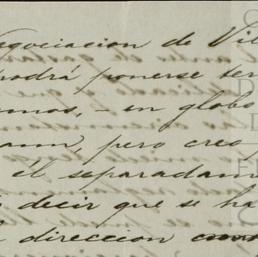 egociacion de Vil
podrá ponerse ter
mos, - en globo
ann, pero creo
él separadam
decir que se ha
direccion